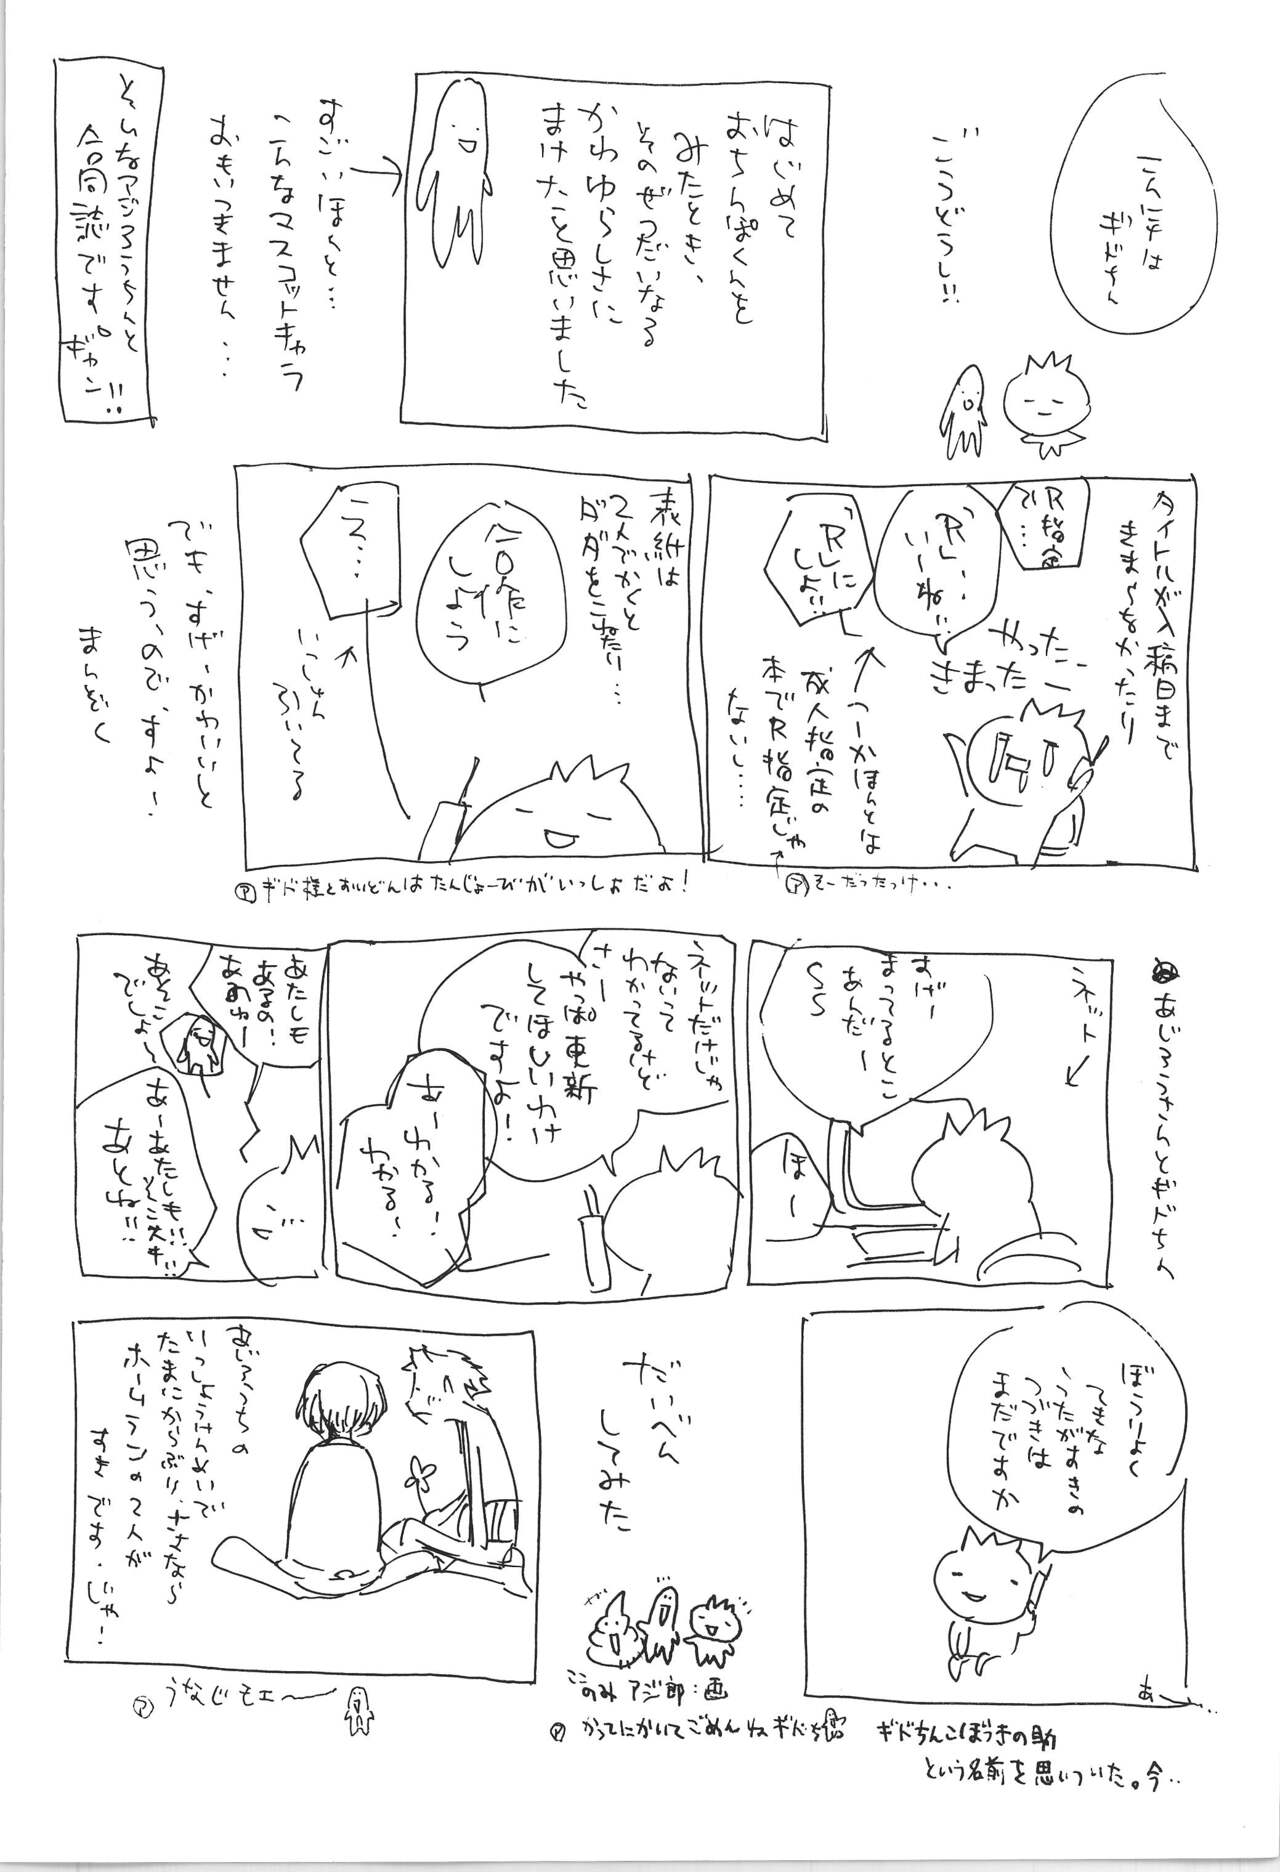 こんにちは
ギドちん
ごうどうし!!
はじめて
おちんぽくんを
みたとき、
そのぜつだいなる
かわゆらしさに
まけたと思いました
すごいほんと…
こんなマスコットキャラ
おもいつきません…
そんなアジろうちんと
合同誌です。ギャン!!
タイトルが入稿日まで
きまらなかったり
R指定
で…
「RL」…
いーね…
「RL」に
しよ!!
やったー
きまったー
つーかほんとは
成人指定の
本でR指定じゃ
ないし…
ア そーだったっけ…
表紙は
2人でかくと
ダダをこねたり…
合体に
しよう
え…
いっしゅん
ひいてる
ア ギド様とすいどんはたんじょーびがいっしょだよ!
でも、すげーかわいいと
思う、ので、すよー
まんぞく
あじろうさんとギドちん
ネット
すげー
まってるとこ
あんだー
SS
ほー
ネットだけじゃ
ないって
わかってるけど
さー
やっぱ更新
してほしいわけ
ですよ!
あーわかる!
わかる!
あたしも
あるの!
あるわー
あそこ
でしょー
あ~あたしも!!
そこスキ!!
あとね!!
ぼうりょく
てきな
うたがすきの
つづきは
まだですか
あー…
だいべん
してみた
ここ
のみ アジ郎:画
ア かってにかいてごめんねギドち
ギドちんこぼうきの助
という名前を思いついた。今…
あじろうちの
いっしょうけんめいで
たまにからぶり、ナさなら
ホームランの2人が
すきです。じゃ!
ア うなじモエ~